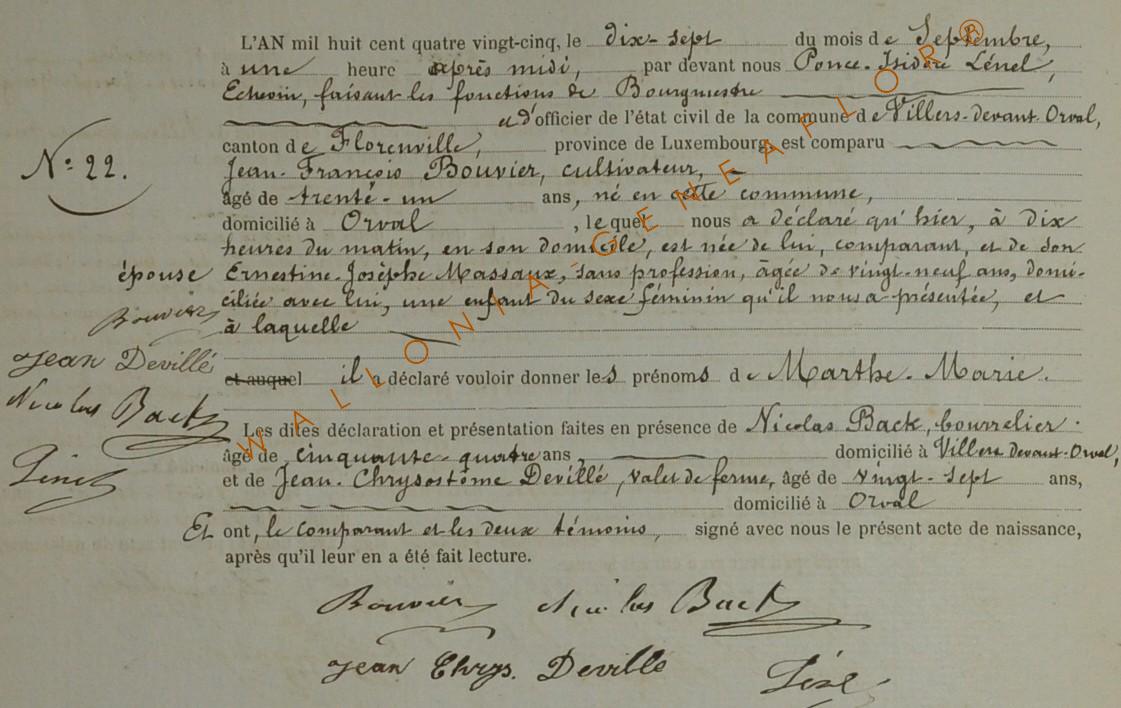 L'AN mil huit cent quatre vingt-cinq, le dix-sept du mois de Septembre,
à une heure après midi, par devant nous Ponce-Isidore Lénel,
Echevin, faisant les fonctions de Bourgmestre
et d'officier de l'état civil de la commune de Villers-devant-Orval,
canton de Florenville, province de Luxembourg, est comparu
N: 22.
Jean-François Bouvier, cultivateur,
âgé de trente-un ans, né en cette commune,
domicilié à Orval, lequel nous a déclaré qu'hier, à dix
heures du matin, en son domicile, est née de lui, comparant, et de son
épouse Ernestine-Josèphe Massaux, sans profession, âgée de vingt-neuf ans, domi-
ciliée avec lui, une enfant du sexe féminin qu'il nous a présentée, et
Bouvier
à laquelle
Jean Devillé
et auquel il a déclaré vouloir donner les prénoms de Marthe-Marie.
Nicolas Back
Les dites déclaration et présentation faites en présence de Nicolas Back, bourrelier
âgé de cinquante-quatre ans, domicilié à Villers-devant-Orval,
et de Jean-Chrysostôme Devillé, valet de ferme, âgé de vingt-sept ans,
domicilié à Orval
Et ont, le comparant et les deux témoins, signé avec nous le présent acte de naissance,
après qu'il leur en a été fait lecture.
Bouvier Nicolas Back
Jean Chrys. Devillé
WALLONIA - GENEAFLOR ®